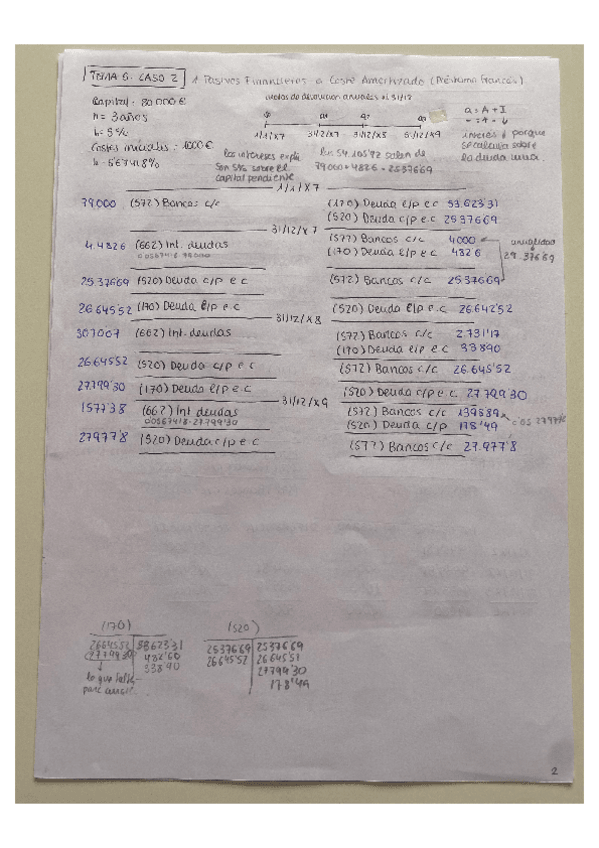 TEMA 6. CASO 2 Pasivos Financieros a Coste Amortizado (Préstamo francés).
Capital = 80.000€ cuotas de devolución anuales al 31/12
n = 3 años a1 a2 a3 a = A + I
i = 5% 1/1/X7 31/12/X7 31/12/X8 31/12/X9
Costes iniciales = 1000€ interés porque
i = 5'67418% se calcula sobre
la deuda
los intereses
son 5% sobre el
capital pendiente
los 54.105'72 salen de
79000 + 4826 -
1/1/X7
79.000 (572) Bancos c/c (170) Deuda l/p e.c 53.623'31
(520) Deuda c/p e.c 25.376'69
31/12/X7
4.4826 (662) Int. deudas (572) Bancos c/c 4000 anualidad
0'0567418·79.000 (170) Deuda l/p e.c 482'6 29.376'69
25.376'69 (520) Deuda c/p e c (572) Bancos c/c 25.376'69
26.645'52 (170) Deuda l/p e.c (520) Deuda c/p e.c 26.645'52
31/12/X8
3070'07 (662) Int. deudas (572) Bancos c/c 2.731'17
(170) Deuda l/p e.c 338'90
26.645'52 (520) Deuda c/p e.c (572) Bancos c/c 26.645'52
27.799'30 (170) Deuda l/p e.c (520) Deuda c/p e.c. 27.799'30
31/12/X9
1577'38 (662) Int deudas (572) Bancos c/c 1398'89
0'0567418·27.799'30 (520) Deuda c/p 178'49
27977'8 (520) Deuda c/p e.c (572) Bancos c/c 27.977'8
(170) (520)
26645'52 53623'31 25376'69 25376'69
27799'30 482'60 26645'52 26645'51
338'90 27799'30
lo que falta 178'49
para
2